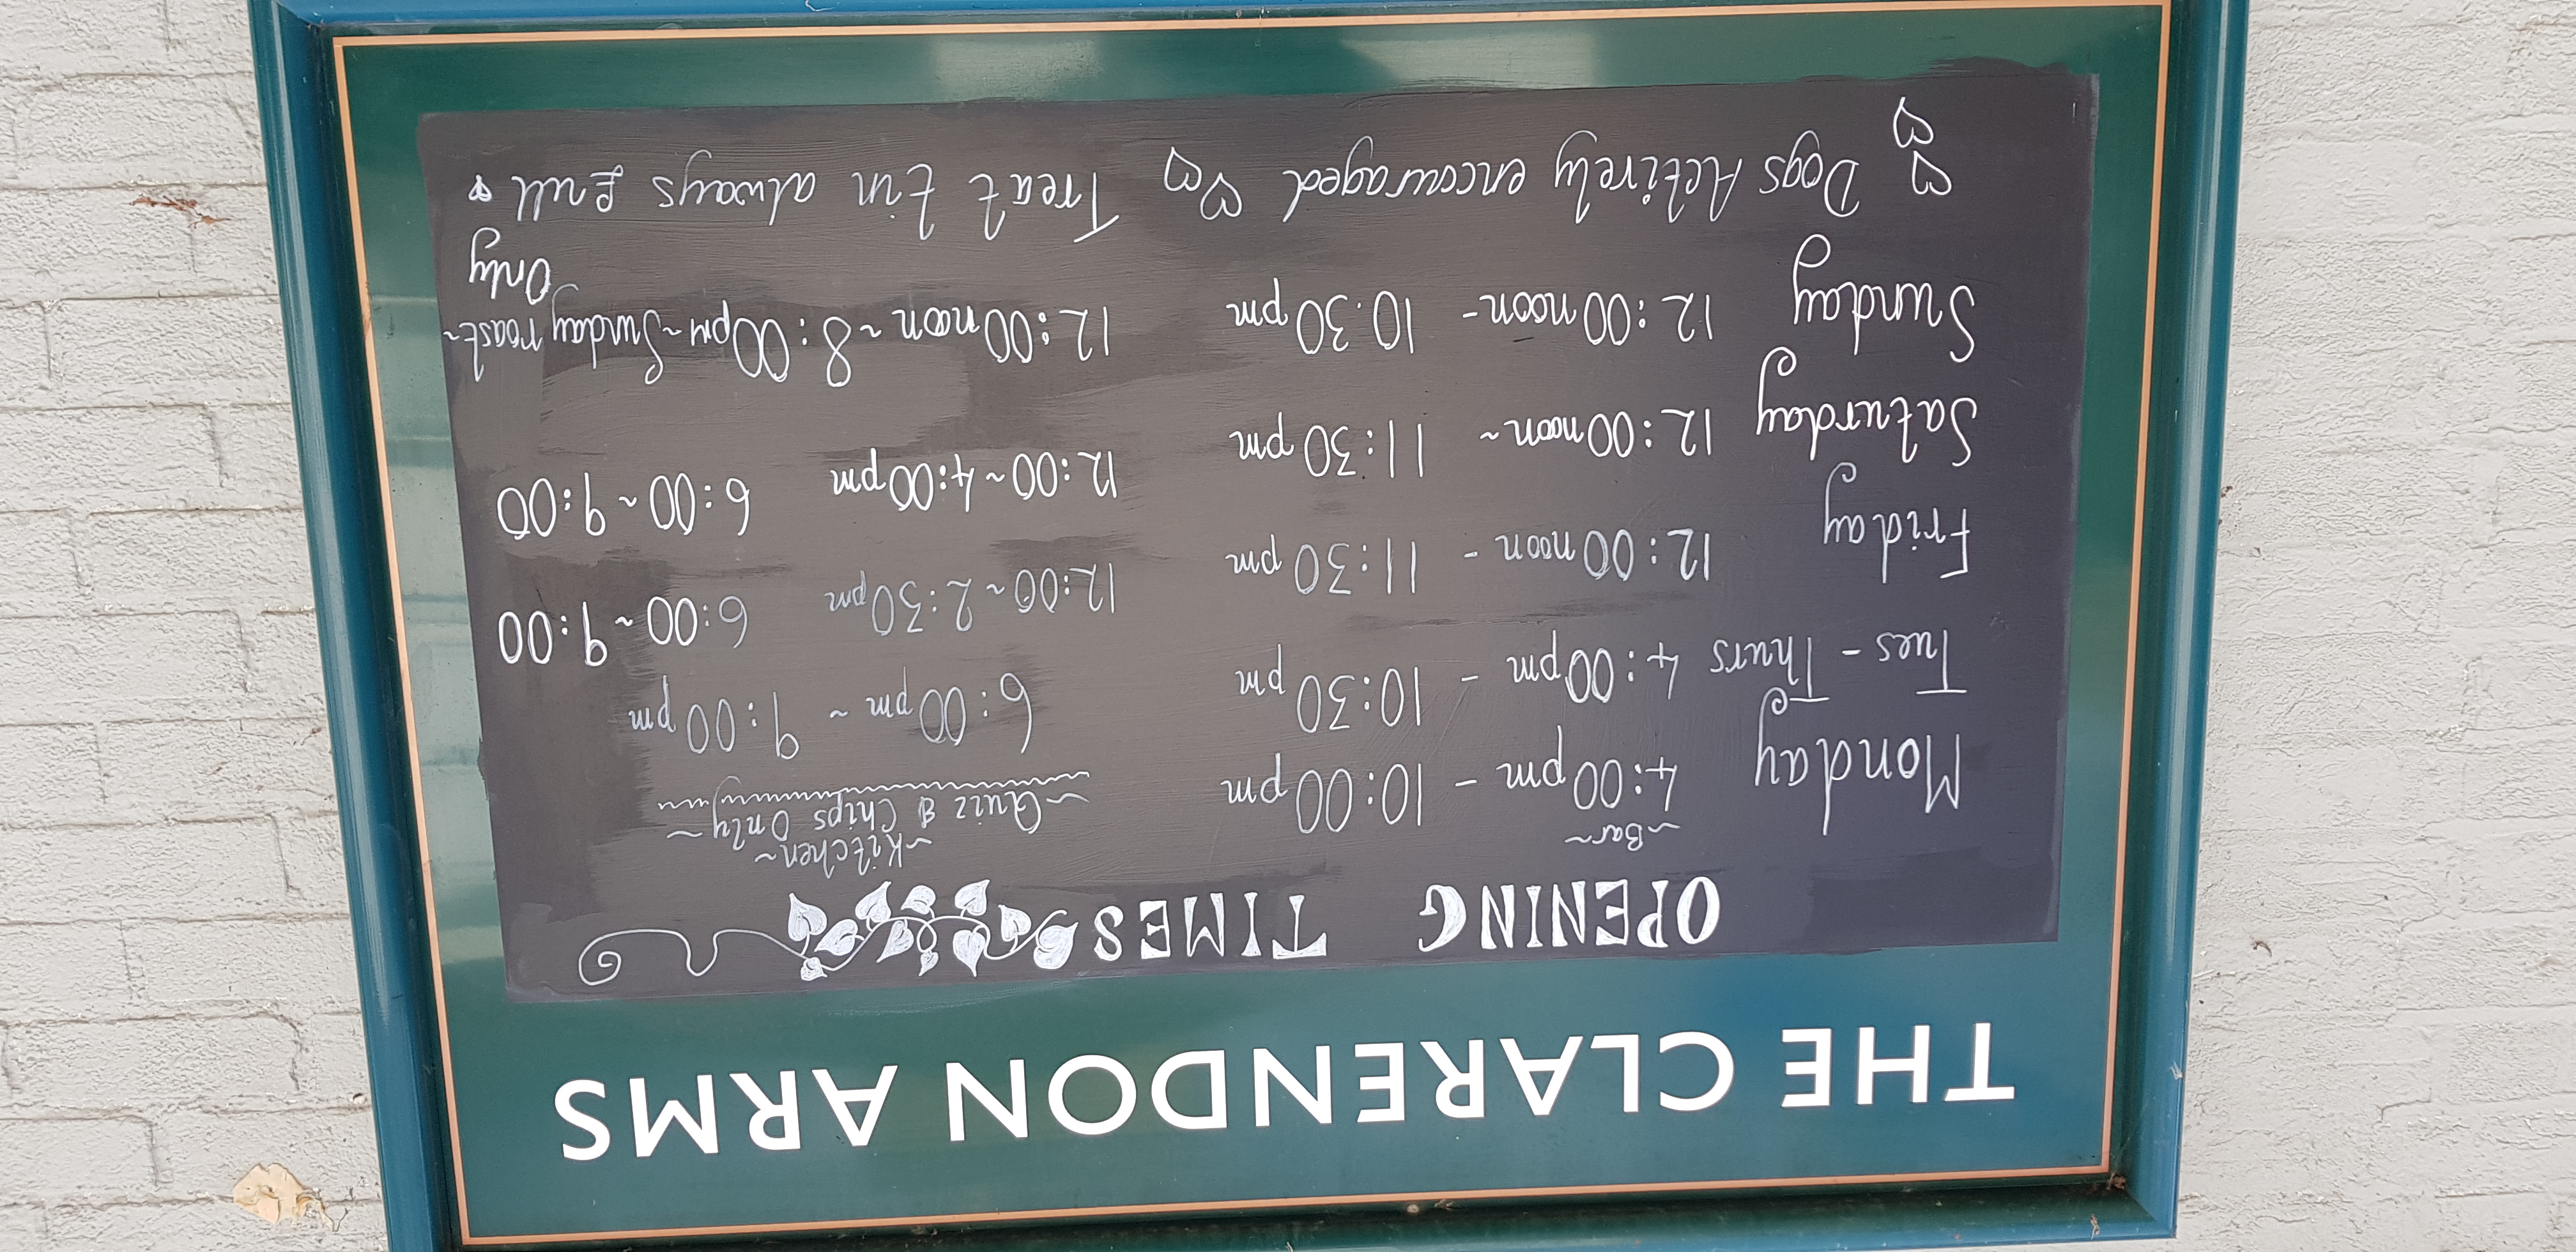 THE CLARENDON ARMS
OPENING TIMES
~Bar~ ~Kitchen~
Monday 4:00pm - 10:00pm ~Quiz & Chips Only~
Tues - Thurs 4:00pm - 10:30pm 6:00pm ~ 9:00pm
Friday 12:00noon - 11:30pm 12:00~2:30pm 6:00~9:00
Saturday 12:00noon~ 11:30pm 12:00~4:00pm 6:00~9:00
Sunday 12:00noon- 10:30pm 12:00noon~8:00pm~Sunday roast~
Only
Dogs Actively encouraged Treat tin always full